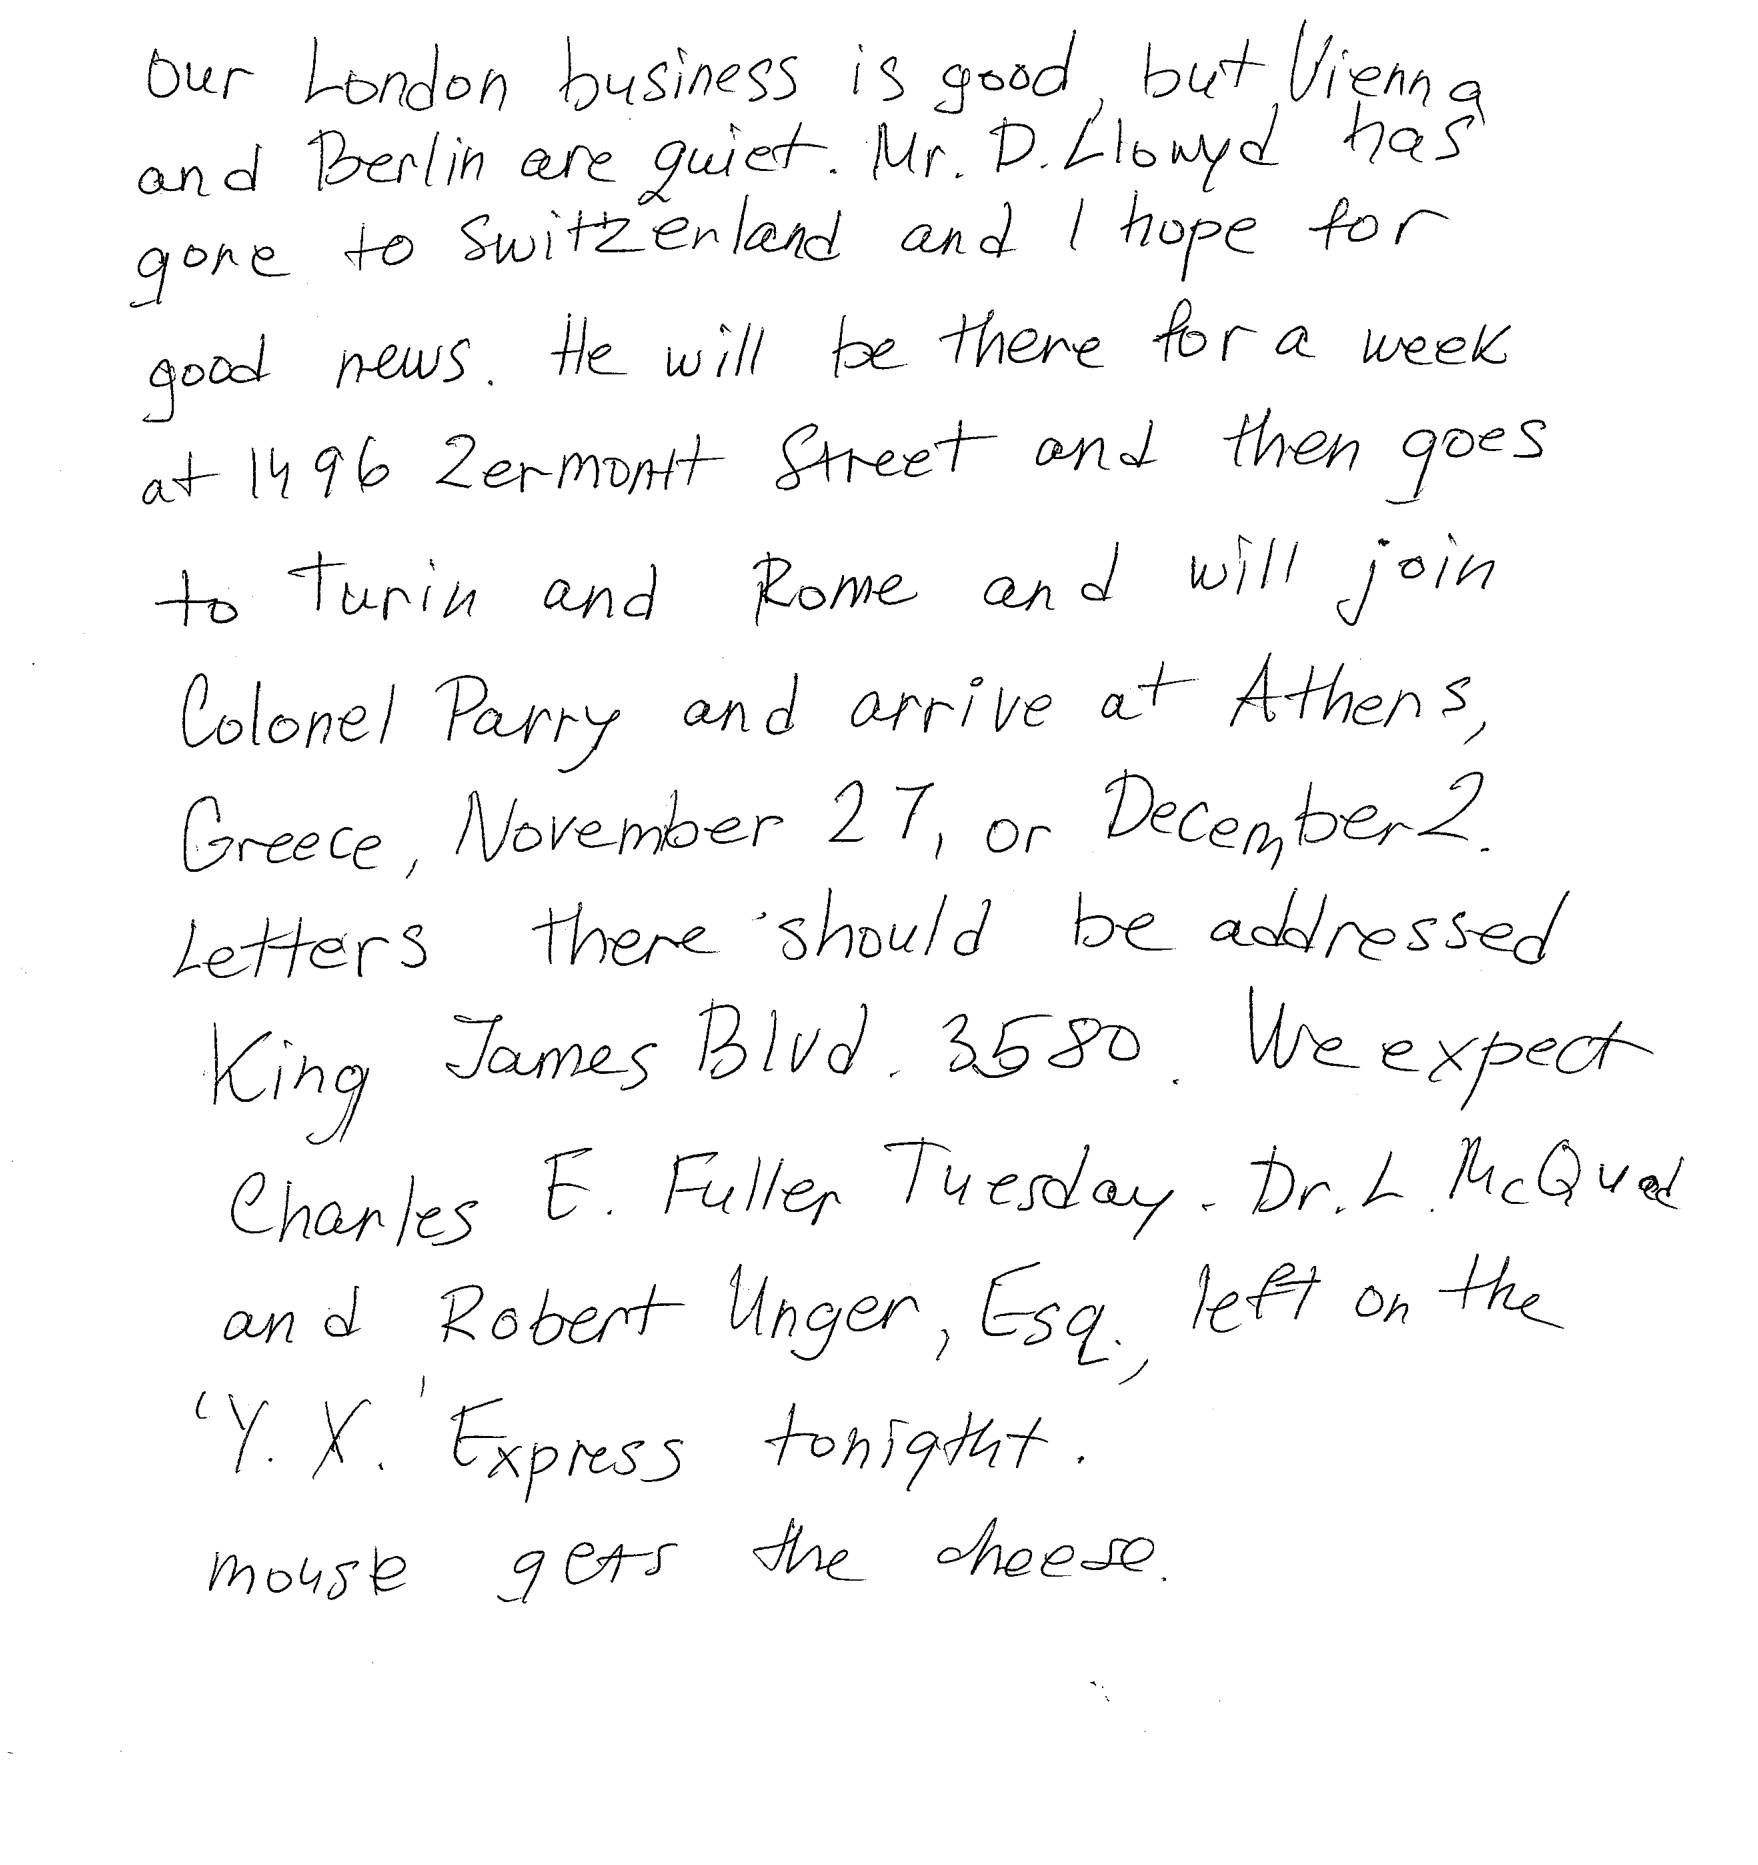 Our London business is good, but Vienna
and Berlin are quiet. Mr. D. Llowyd has
gone to Switzerland and I hope for
good news. He will be there for a week
at 1496 Zermontt Street and then goes
to Turin and Rome and will join
Colonel Parry and arrive at Athens,
Greece, November 27, or December 2.
Letters there should be addressed
King James Blvd. 3580. We expect
Charles E. Fuller Tuesday. Dr. L. McQuad
and Robert Unger, Esq., left on the
'Y. X.' Express tonigtht.
mouse gets the cheese.